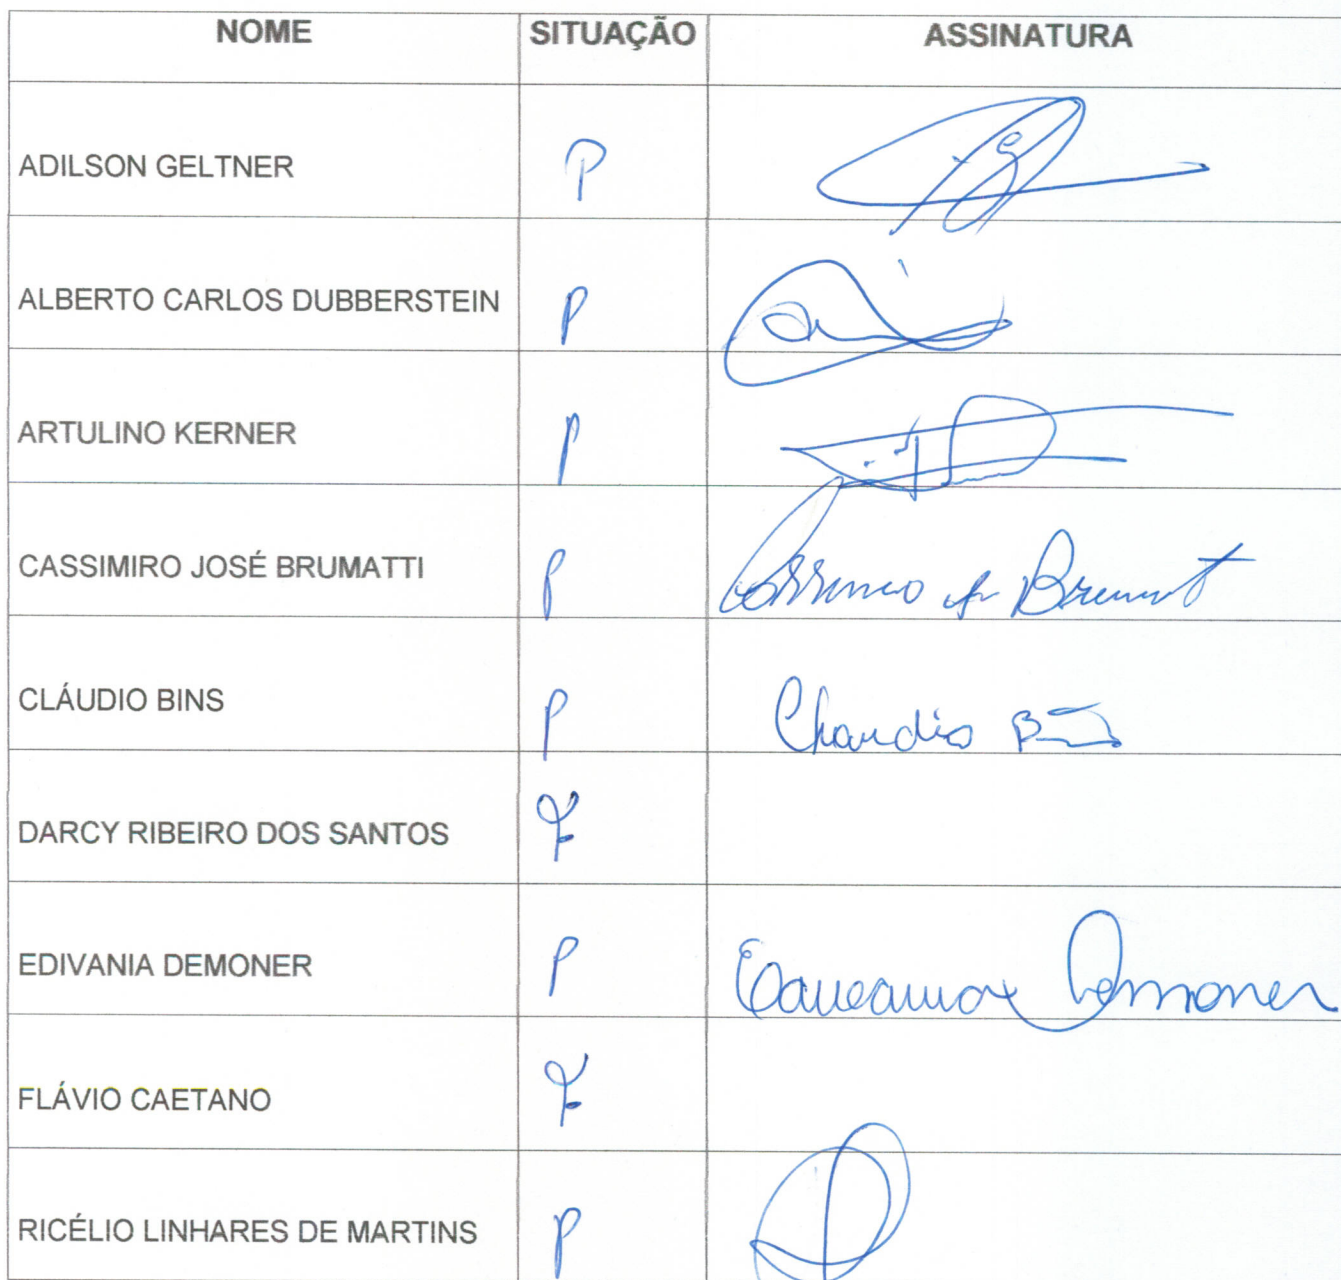 NOME SITUAÇÃO ASSINATURA
ADILSON GELTNER P
ALBERTO CARLOS DUBBERSTEIN P
ARTULINO KERNER P
CASSIMIRO JOSÉ BRUMATTI P
CLÁUDIO BINS P Claudio
DARCY RIBEIRO DOS SANTOS F
EDIVANIA DEMONER P Demoner
FLÁVIO CAETANO F
RICÉLIO LINHARES DE MARTINS P